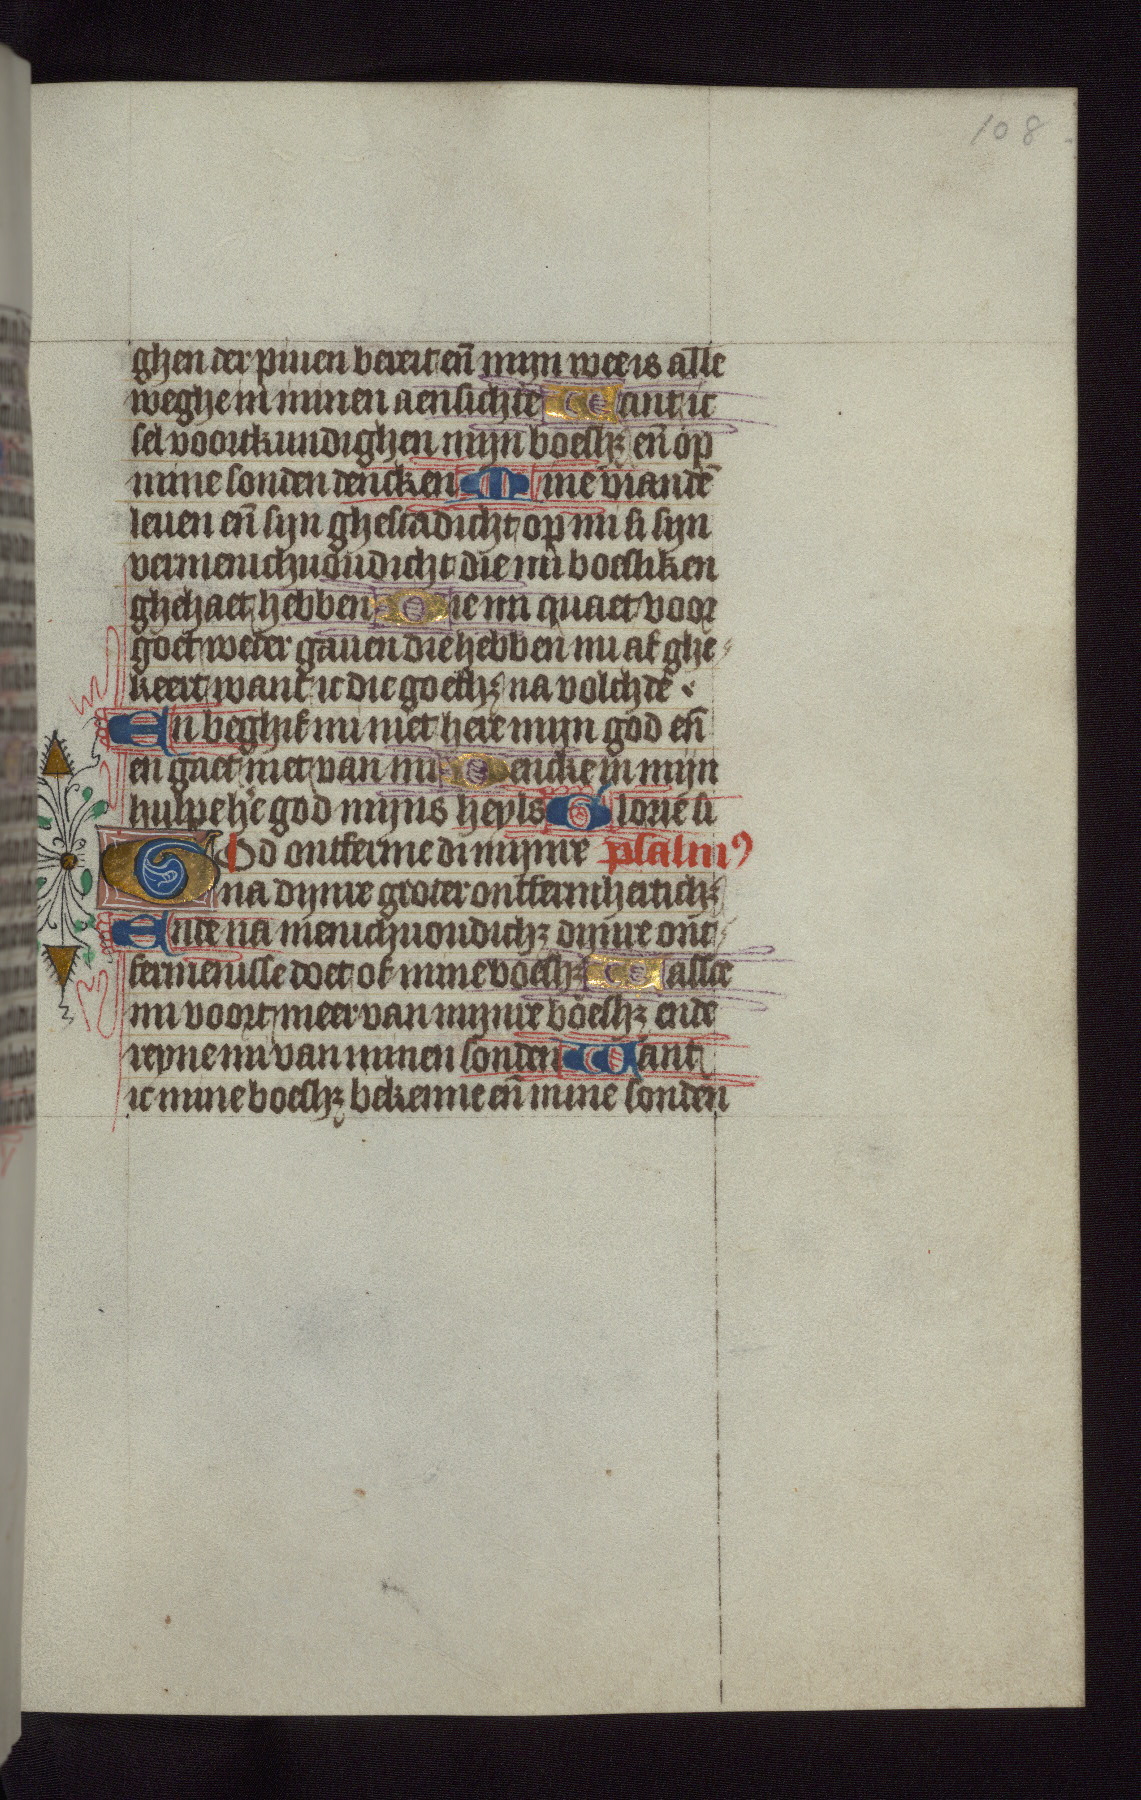 108
ghen der pinen bereit en̄ mijn wee is alle
weghe in minen aensichtē Want ic
sel voortkundighen mijn boeshꝫ en̄ op
mine sonden dencken Mine viandē
leuen en̄ sijn ghestadicht op mi si sijn
vermenichuoudicht die mi boesliken
ghehaet hebben Die mi quaet voor
goet weder gauen die hebben mi af ghe⸗
keert want ic die goethꝫ na volchdē
En beghif mi niet here mijn god en̄
en gaet niet van mi Dencke in mijn
hulpe he god mijns heyls Glorie si
God ontferme di mijnre psalmꝰ
na dijnre groter ontfermherticꝫ
Ende na menichuoudichꝫ dijnre ont⸗
fermenisse doet of mine boeshꝫ Wassce
mi voort meer van mijnre boeshꝫ ende
reyne mi van minen sonden Want
ic mine boeshꝫ bekenne en̄ mine sonden